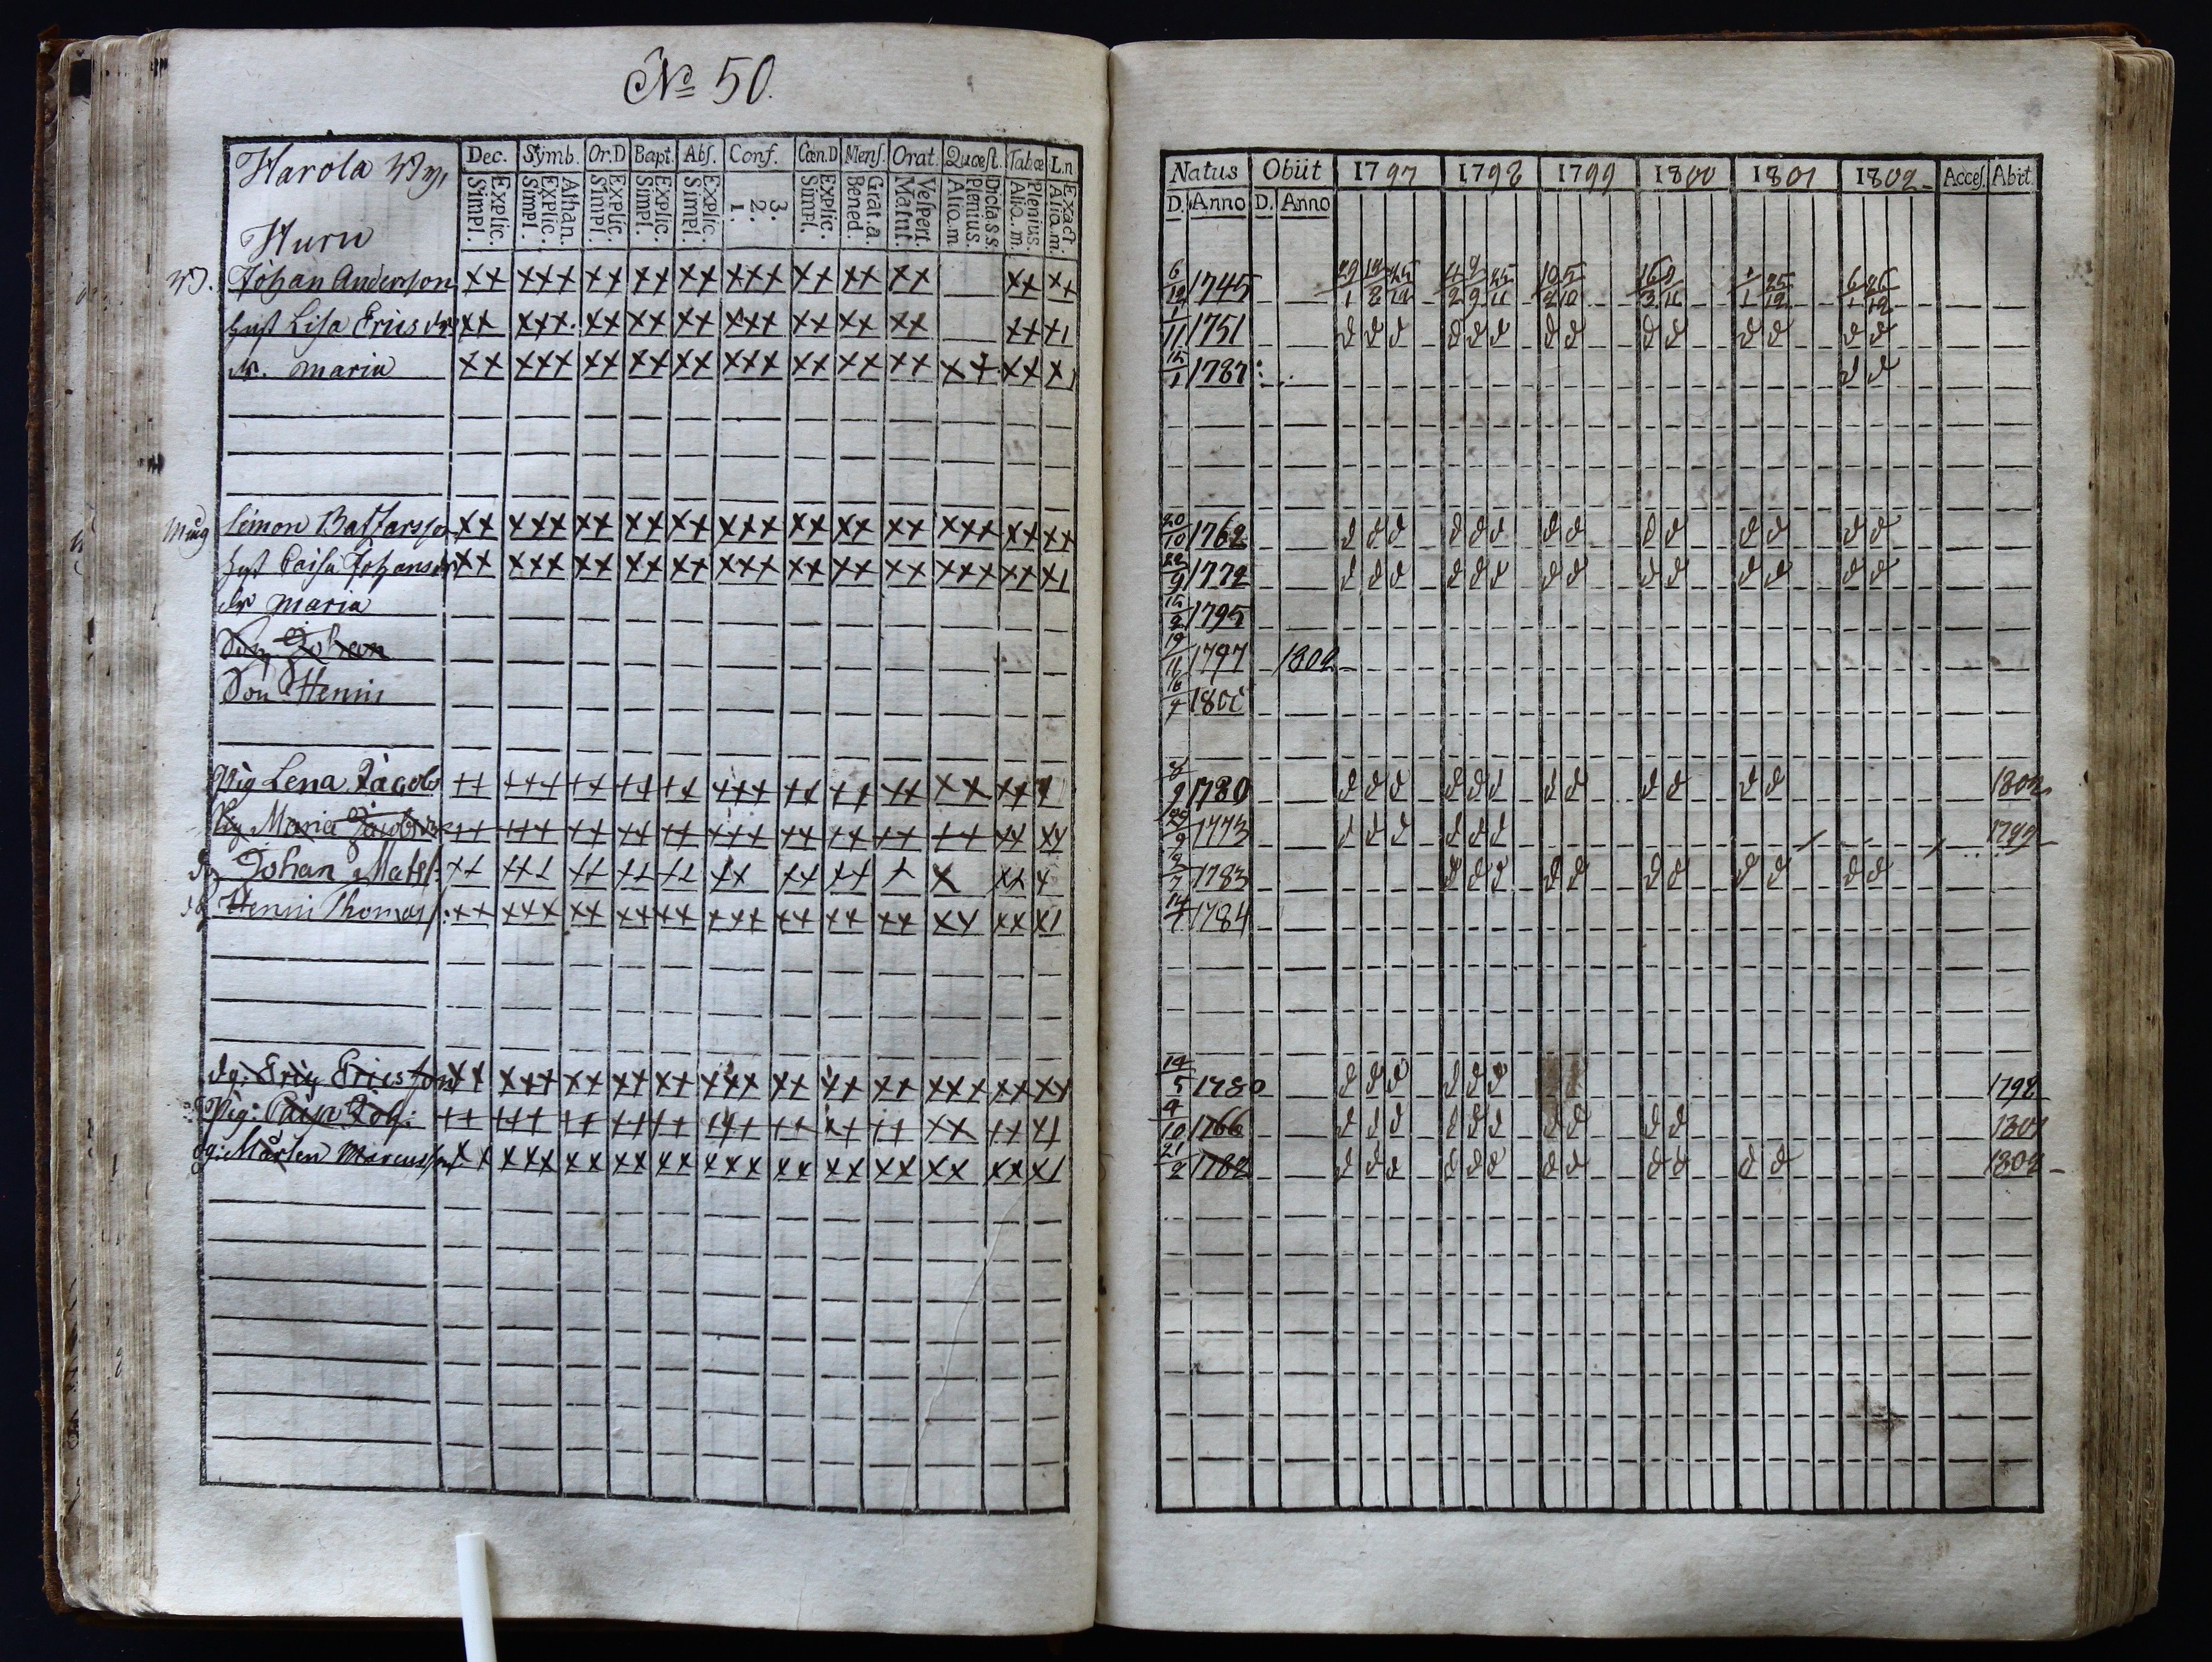 No 50.
Harola By,
Dec. Symb. Or.D Bapt. Abs. Conf. Cœn.D Mens. Orat. Quœst. Tabœ L.n
Explic. Simpl. Athan. Explic. Simpl. Explic. Simpl. Explic. Simpl. Explic. Simpl. 3. 2. 1. Explic. Simpl. Grat.a. Bened. Vespert. Matut. Dicta.s.s. Plenius. Alio.m. Plenius. Alio.m. Exact. Alio.m.
Huru
Johan Andersson xx xxx xx xx xx xxx xx xx xx xx xx
hust Lisa Ericsdr xx xxx xx xx xx xxx xx xx xx xx x1
dr. maria xx xxx xx xx xx xxx xx xx xx xx xx x1
Måg Simon Baltzarsson xx xxx xx xx xx xxx xx xx xx xxx xx xx
hust Caisa Johansdr xx xxx xx xx xx xxx xx xx xx xxx xx x1
dr maria
Son Johan
Son Henric
Pig Lena Jacobs xx xxx xx xx xx xxx xx xx xx xx xx
Pig Maria Jacobsdr xx xxx xx xx xx xxx xx xx xx xx xx xx
Johan Matss. xx xxx xx xx xx xx xx xx x x xx x
Henric Thomass. xx xxx xx xx xx xxx xx xx xx xx xx x1
dg: Eric Ericsson xx xxx xx xx xx xxx xx xx xx xxx xx xx
Pig: Caisa Joh: xx xxx xx xx xx xxx xx xx xx xx xx x1
dg: Mårten Marcusson xx xxx xx xx xx xxx xx xx xx xx xx x1
Natus Obiit 1797 1798 1799 1800 1801 1802 Acces. Abit.
D. Anno D. Anno
6/12 1745 29/1 25/12 25/11 10/2 5/10 16/3 9/11 1/1 25/12 6/1 26/12
1/11 1751 d d d d d d d d d d d d d d
15/1 1787 d d
20/10 1762 d d d d d d d d d d d d d d
22/9 1772 d d d d d d d d d d d d d d
15/2 1795
19/11 1797 1802
16/4
8/9 1780 d d d d d d d d d d d d 1802
29/9 1773 d d d d d d 1799
1783 d d d d d d d d d d d
14/1 1784
14/5 1780 d d d d d d 1798
4/10 1766 d d d d d d d d d d 1801
21/2 1782 d d d d d d d d d d d d 1802